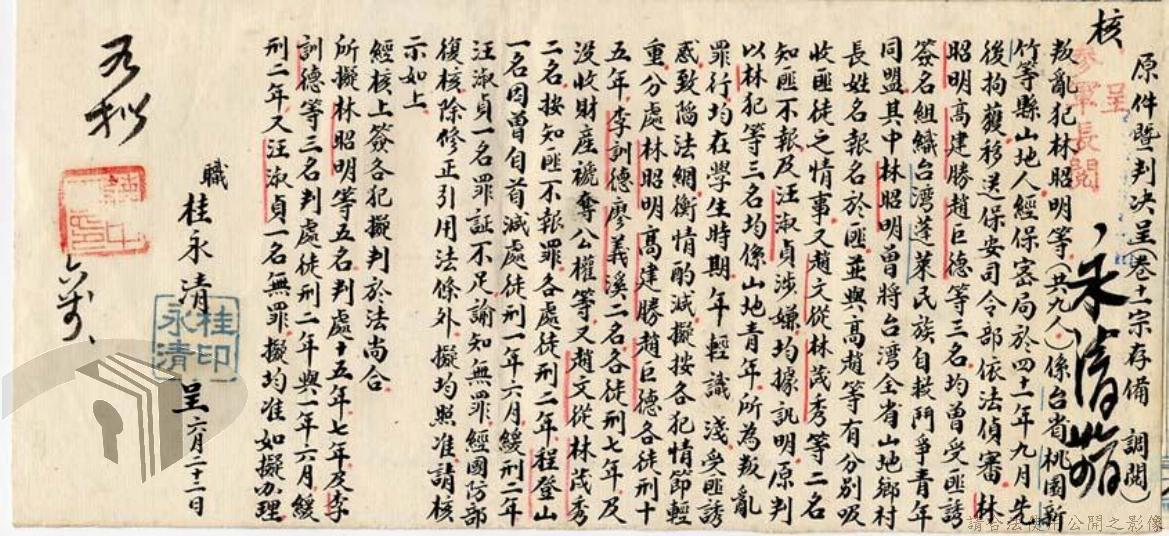 原件暨判決呈(卷十一宗存備 調閱)
呈
參軍長閱
核
叛亂犯林昭明等(共九人)係台省桃園新
竹等縣山地人經保密局於四十一年九月先
後拘獲移送保安司令部依法偵審林
昭明高建勝趙巨德等三名均曾受匪誘
簽名組織台灣蓬萊民族自救鬥爭青年
同盟其中林昭明曾將台灣全省山地鄉村
長姓名報名於匪並與高趙等有分別吸
收匪徒之情事又趙文從林茂秀等二名
知匪不報及汪淑貞涉嫌均據訊明原判
以林犯等三名均係山地青年所為叛亂
罪行均在學生時期年輕識淺受匪誘
惑致陷法網衡情酌減擬按各犯情節輕
重分處林昭明高建勝趙巨德各徒刑十
五年李訓德廖義溪二名各徒刑七年及
沒收財產褫奪公權等又趙文從林茂秀
二名按知匪不報罪各處徒刑二年程登山
一名因曾自首減處徒刑一年六月緩刑二年
汪淑貞一名罪証不足諭知無罪經國防部
復核除修正引用法條外擬均照准請核
示如上
經核上簽各犯擬判於法尚合
所擬林昭明等五名判處十五年七年及李
訓德等三名判處徒刑二年與一年六月緩
刑二年又汪淑貞一名無罪擬均准如擬辦理
職 桂永清 呈 六月二十二日
桂永清印
如擬
請合法使用公開之影像